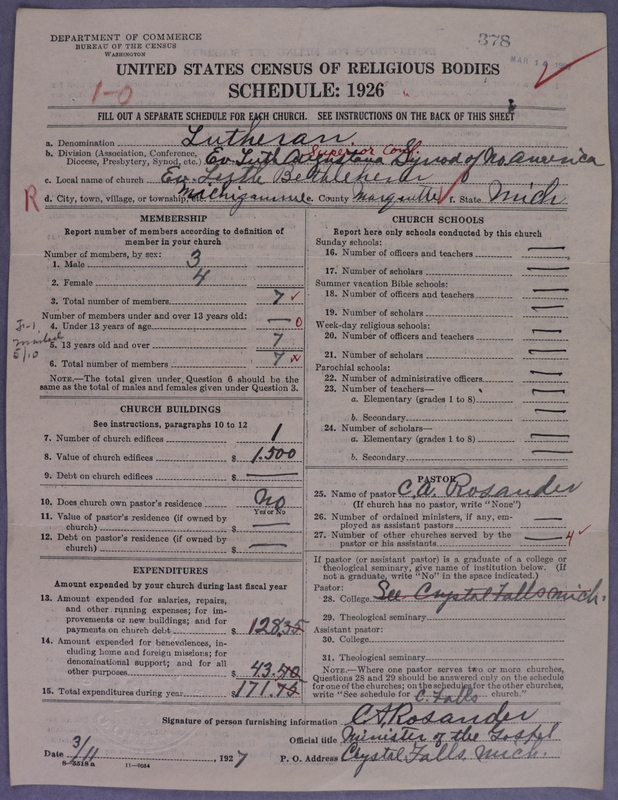 DEPARTMENT OF COMMERCE
BUREAU OF THE CENSUS
WASHINGTON
378
MAR 1
UNITED STATES CENSUS OF RELIGIOUS BODIES
SCHEDULE: 1926
1-0
FILL OUT A SEPARATE SCHEDULE FOR EACH CHURCH. SEE INSTRUCTIONS ON THE BACK OF THIS SHEET
a. Denomination Lutheran
b. Division (Association, Conference, Superior Conf.
Diocese, Presbytery, Synod, etc.) Ev. Luth Augustana Synod of No America
c. Local name of church Ev. Luth Bethlehem
R d. City, town, village, or township, Michigamme e. County Marquette f. State Mich
MEMBERSHIP
Report number of members according to definition of
member in your church
Number of members, by sex:
1. Male 3
2. Female 4
3. Total number of members 7
Number of members under and over 13 years old:
4. Under 13 years of age — 0
5. 13 years old and over 7
5/10
6. Total number of members 7
NOTE.—The total given under Question 6 should be
the same as the total of males and females given under Question 3.
CHURCH BUILDINGS
See instructions, paragraphs 10 to 12
7. Number of church edifices 1
8. Value of church edifices $ 1,500
9. Debt on church edifices $ —
10. Does church own pastor's residence No
Yes or No
11. Value of pastor's residence (if owned by
church) $ —
12. Debt on pastor's residence (if owned by
church) $ —
EXPENDITURES
Amount expended by your church during last fiscal year
13. Amount expended for salaries, repairs,
and other running expenses; for im-
provements or new buildings; and for
payments on church debt $ 128.35
14. Amount expended for benevolences, in-
cluding home and foreign missions; for
denominational support; and for all
other purposes $ 43.40
15. Total expenditures during year $ 171.75
CHURCH SCHOOLS
Report here only schools conducted by this church
Sunday schools:
16. Number of officers and teachers —
17. Number of scholars —
Summer vacation Bible schools:
18. Number of officers and teachers —
19. Number of scholars —
Week-day religious schools:
20. Number of officers and teachers —
21. Number of scholars —
Parochial schools:
22. Number of administrative officers —
23. Number of teachers—
a. Elementary (grades 1 to 8) —
b. Secondary —
24. Number of scholars—
a. Elementary (grades 1 to 8) —
b. Secondary —
PASTOR
25. Name of pastor C.A. Rosander
(If church has no pastor, write "None")
26. Number of ordained ministers, if any, em-
ployed as assistant pastors —
27. Number of other churches served by the
pastor or his assistants — 4
If pastor (or assistant pastor) is a graduate of a college or
theological seminary, give name of institution below. (If
not a graduate, write "No" in the space indicated.)
Pastor:
28. College See Crystal Falls Mich.
29. Theological seminary
Assistant pastor:
30. College
31. Theological seminary
NOTE.—Where one pastor serves two or more churches,
Questions 28 and 29 should be answered only on the schedule
for one of the churches; on the schedules for the other churches,
write "See schedule for C. Falls church."
Signature of person furnishing information C A Rosander
Official title Minister of the Gospel
Date 3/11, 1927 P. O. Address Crystal Falls, Mich.
8-5518 a 11-9684